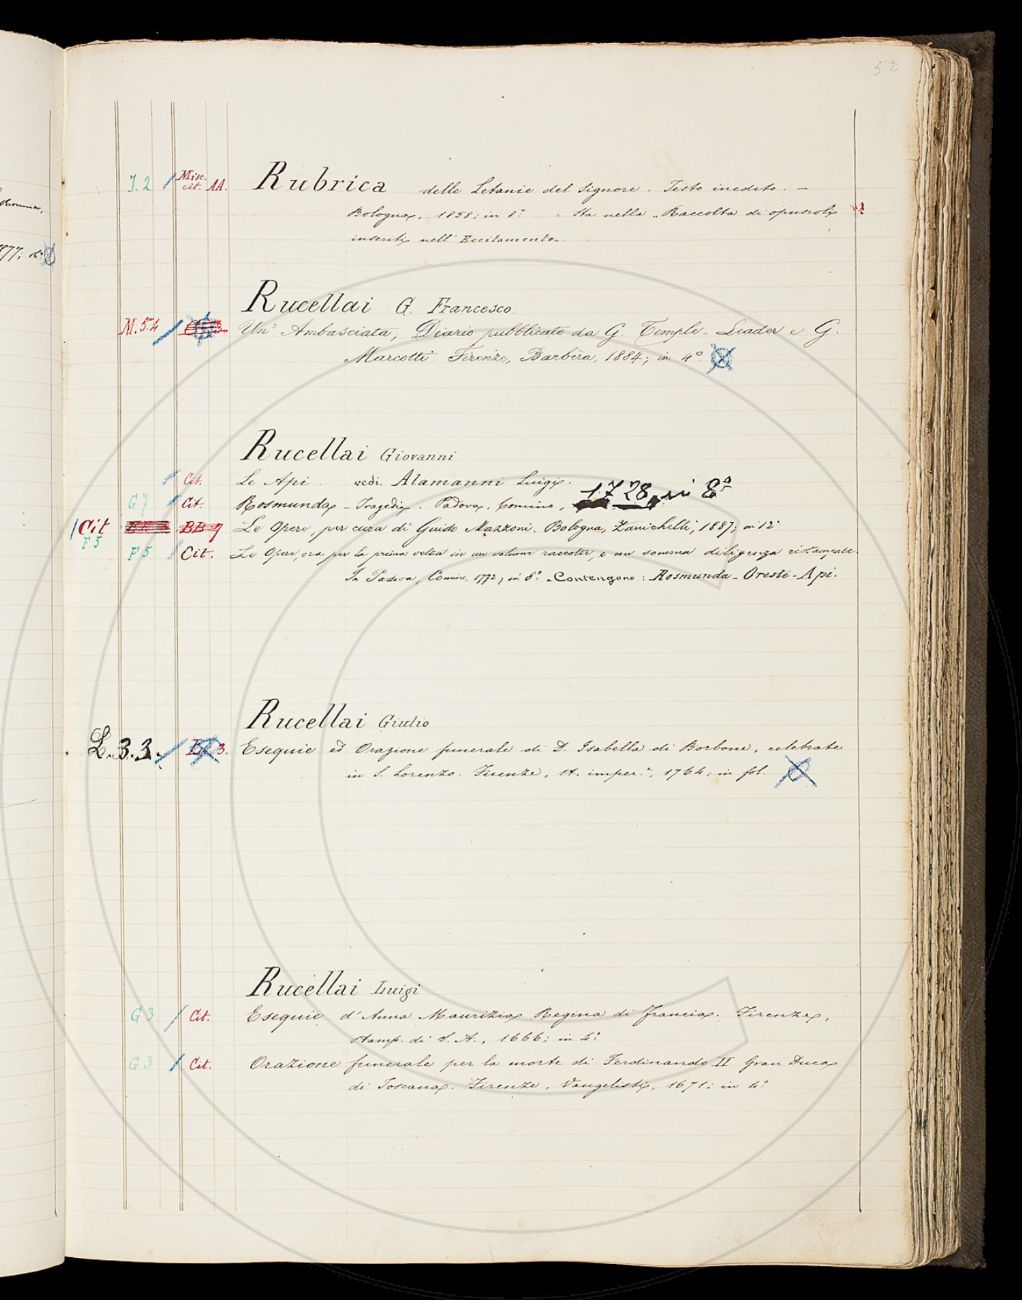 52
J. 2 Misc. cit. AA. Rubrica delle Letanie del Signore. Testo inedito. —
Bologna, 1858; in 8.° Sta nella "Raccolta di opuscoli
inseriti nell' Eccitamento"
877; in
Rucellai G. Francesco
M. 54 Un' Ambasciata, Diario pubblicato da G. Temple-Leader e G.
Marcotti Firenze, Barbèra, 1884; in 4°.
Rucellai Giovanni
Cit. Le Api. vedi Alamanni Luigi.
G 7 Cit. Rosmunda - Tragedia. Padova, Comino, 1728, in 8°
Cit F 5 BB 9 Le Opere, per cura di Guido Mazzoni. Bologna, Zanichelli, 1887; in 12°
F 5 Cit. Le Opere, ora per la prima volta in un volume raccolte, e con somma diligenza ristampate.
In Padova, Comino, 1772; in 8.° - Contengono: Rosmunda - Oreste - Api.
Rucellai Giulio
L. 3. 3. 3. Esequie ed Orazione funerale di D. Isabella di Borbone, celebrate
in S. Lorenzo. Firenze, St. imper.e, 1764; in fol.
Rucellai Luigi
G 3 Cit. Esequie d'Anna Maurizia Regina di Francia. Firenze,
stamp. di S. A., 1666; in 4.°
G 3 Cit. Orazione funerale per la morte di Ferdinando II Gran Duca
di Toscana. Firenze, Vangelisti, 1671; in 4.°